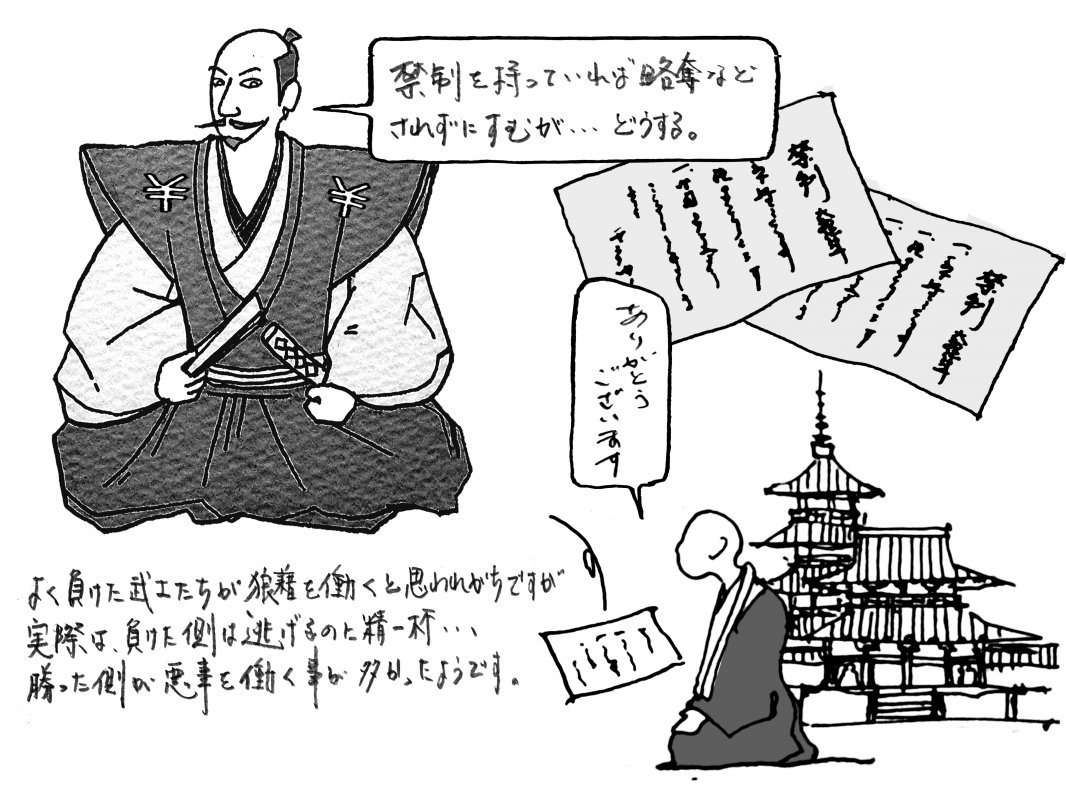 禁制を持っていれば略奪など
されずにすむが・・・どうする。
禁制
禁制
ありがとう
ございます
よく負けた武士たちが狼藉を働くと思われがちですが
実際は、負けた側は逃げるのに精一杯・・・
勝った側が悪事を働く事が多かったようです。